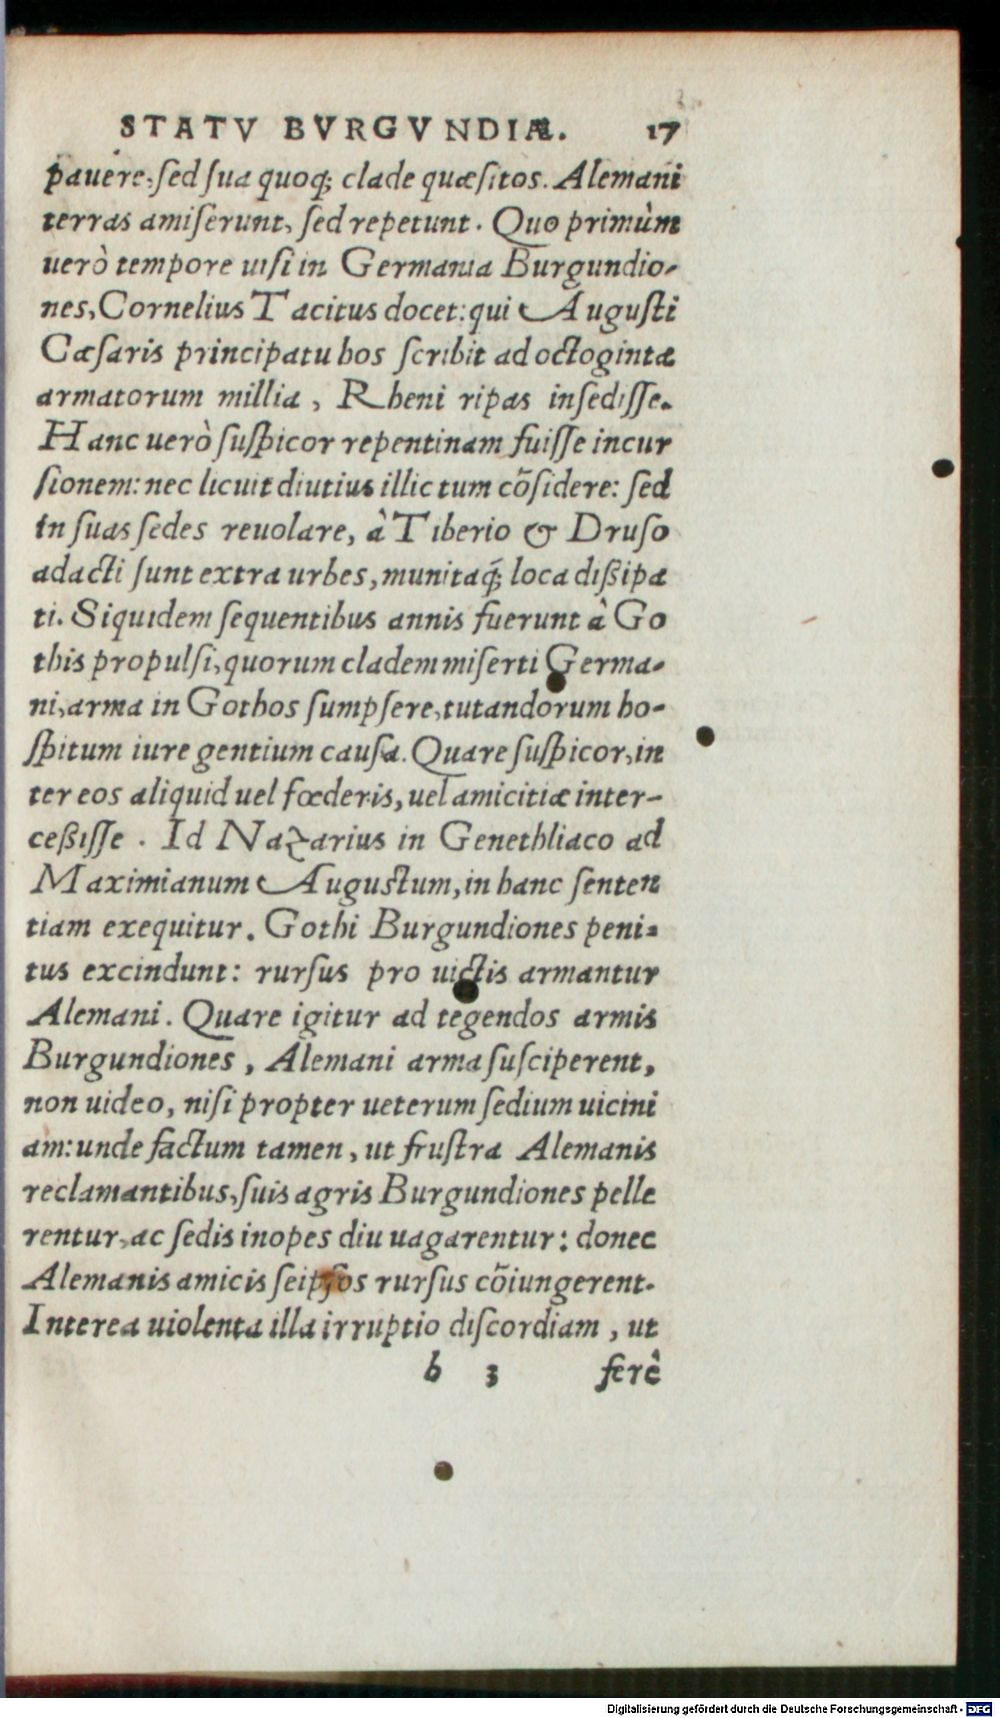 STATV BVRGVNDIÆ. 17
pauere, sed sua quoq; clade quæsitos. Alemani
terras amiserunt, sed repetunt. Quo primùm
uerò tempore uisi in Germania Burgundio-
nes, Cornelius Tacitus docet: qui Augusti
Cæsaris principatu hos scribit ad octoginta
armatorum millia, Rheni ripas insedisse.
Hanc uerò suspicor repentinam fuisse incur
sionem: nec licuit diutius illic tum cõsidere: sed
in suas sedes reuolare, à Tiberio & Druso
adacti sunt extra urbes, munitaq́; loca dißipa
ti. Siquidem sequentibus annis fuerunt à Go
this propulsi, quorum cladem miserti Germa-
ni, arma in Gothos sumpsere, tutandorum ho-
spitum iure gentium causa. Quare suspicor, in
ter eos aliquid uel fœderis, uel amicitiæ inter-
ceßisse. Id Nazarius in Genethliaco ad
Maximianum Augustum, in hanc senten
tiam exequitur. Gothi Burgundiones peni-
tus excindunt: rursus pro uictis armantur
Alemani. Quare igitur ad tegendos armis
Burgundiones, Alemani arma susciperent,
non uideo, nisi propter ueterum sedium uicini
am: unde factum tamen, ut frustra Alemanis
reclamantibus, suis agris Burgundiones pelle
rentur, ac sedis inopes diu uagarentur: donec
Alemanis amicis seipsos rursus cõiungerent.
Interea uiolenta illa irruptio discordiam, ut
b 3 ferè
Digitalisierung gefördert durch die Deutsche Forschungsgemeinschaft - DFG